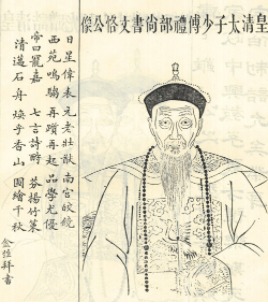 皇清太子少傅禮部尚書文恪公像
日星偉表 元老壯猷 南宮皎鏡
西苑鳴騶 再躓再起 品學尤優
帝曰寵嘉 七言詩疇 芬揚竹策
清邁石舟 煥乎香山 圖繪千秋
金甡拜書